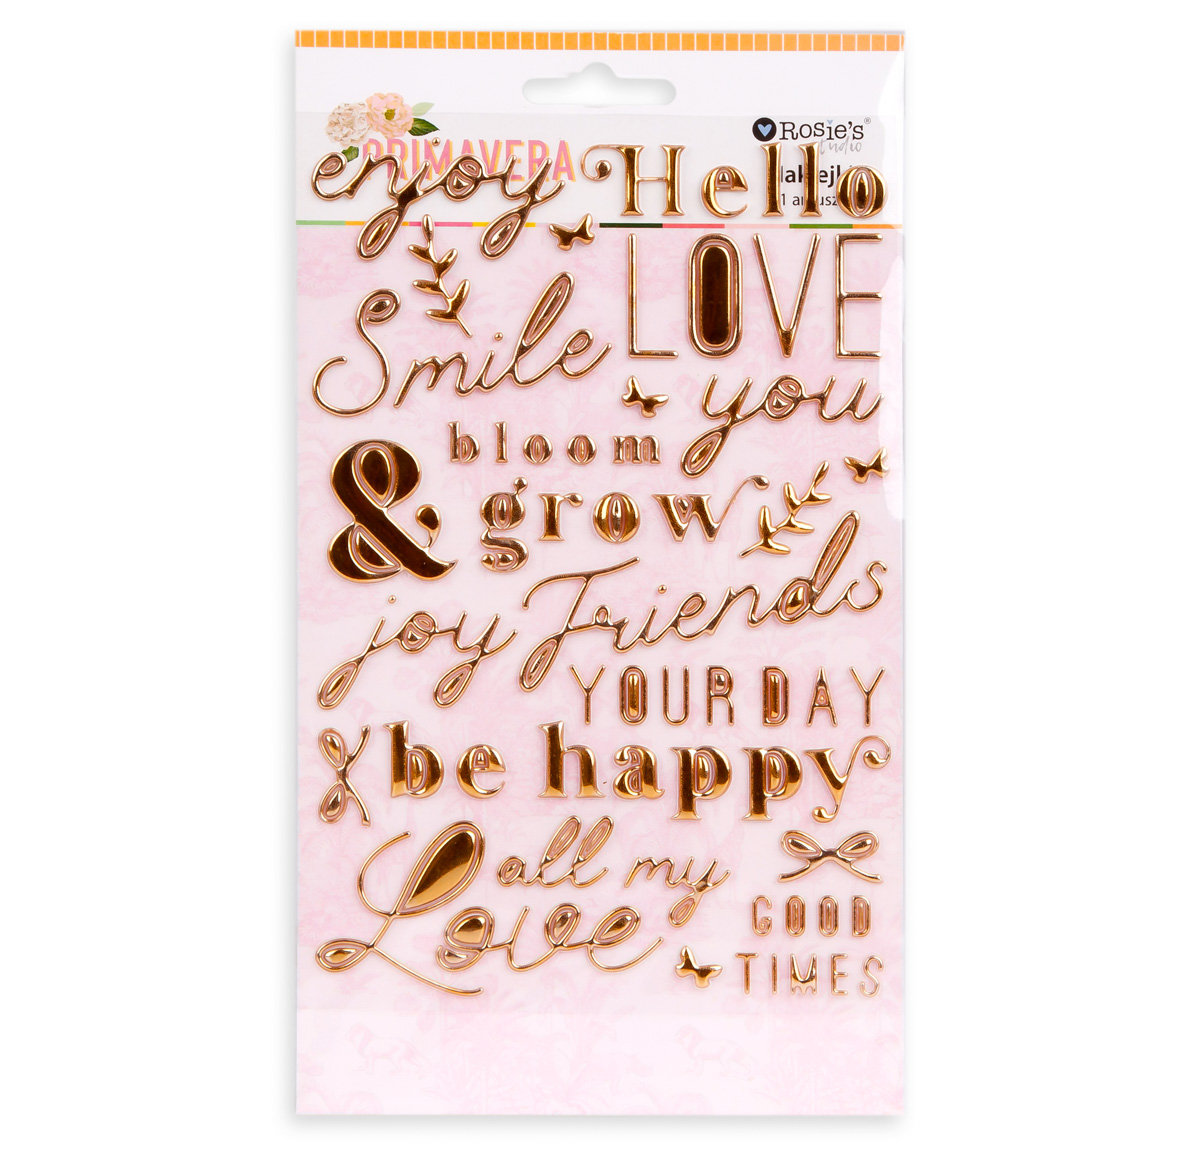 PRIMAVERA
Rosie's®
studio
enjoy Hello
LOVE
Smile
you
bloom
& grow
joy Friends
YOUR DAY
be happy
all my
Love
GOOD
TIMES